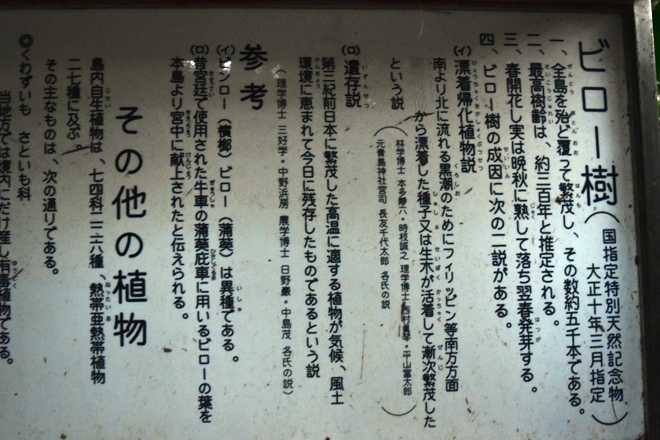 ビロー樹(国指定特別天然記念物 大正十年三月指定)
一、全島を殆ど覆って繁茂し、その数約五千本である。
二、最高樹齢は、約三百年と推定される。
三、春開花し実は晩秋に熟して落ち翌春発芽する。
四、ビロー樹の成因に次の二説がある。
(イ)漂着帰化植物説
南より北に流れる黒潮のためにフィリッピン等南方方面
から漂着した種子又は生木が活着して漸次繁茂した
という説
(科学博士 本多静六・時枝誠之 理学博士 西村真琴・平山富太郎
元青島神社宮司 長友千代太郎 各氏の説)
(ロ)遺存説
第三紀前日本に繁茂した高温に適する植物が気候、風土
環境に恵まれて今日に残存したものであるという説
(理学博士 三好学・中野治房 農学博士 日野巌・中島茂 各氏の説)
参考
(イ)ビンロー(檳榔)ビロー(蒲葵)は異種である。
(ロ)昔宮廷で使用された牛車の蒲葵庇車に用いるビローの葉を
本島より宮中に献上されたと伝えられる。
その他の植物
島内自生植物は、七四科二二六種、熱帯亜熱帯植物
二七種に及ぶ。
その主なものは、次の通りである。
◎くわずいも さといも科